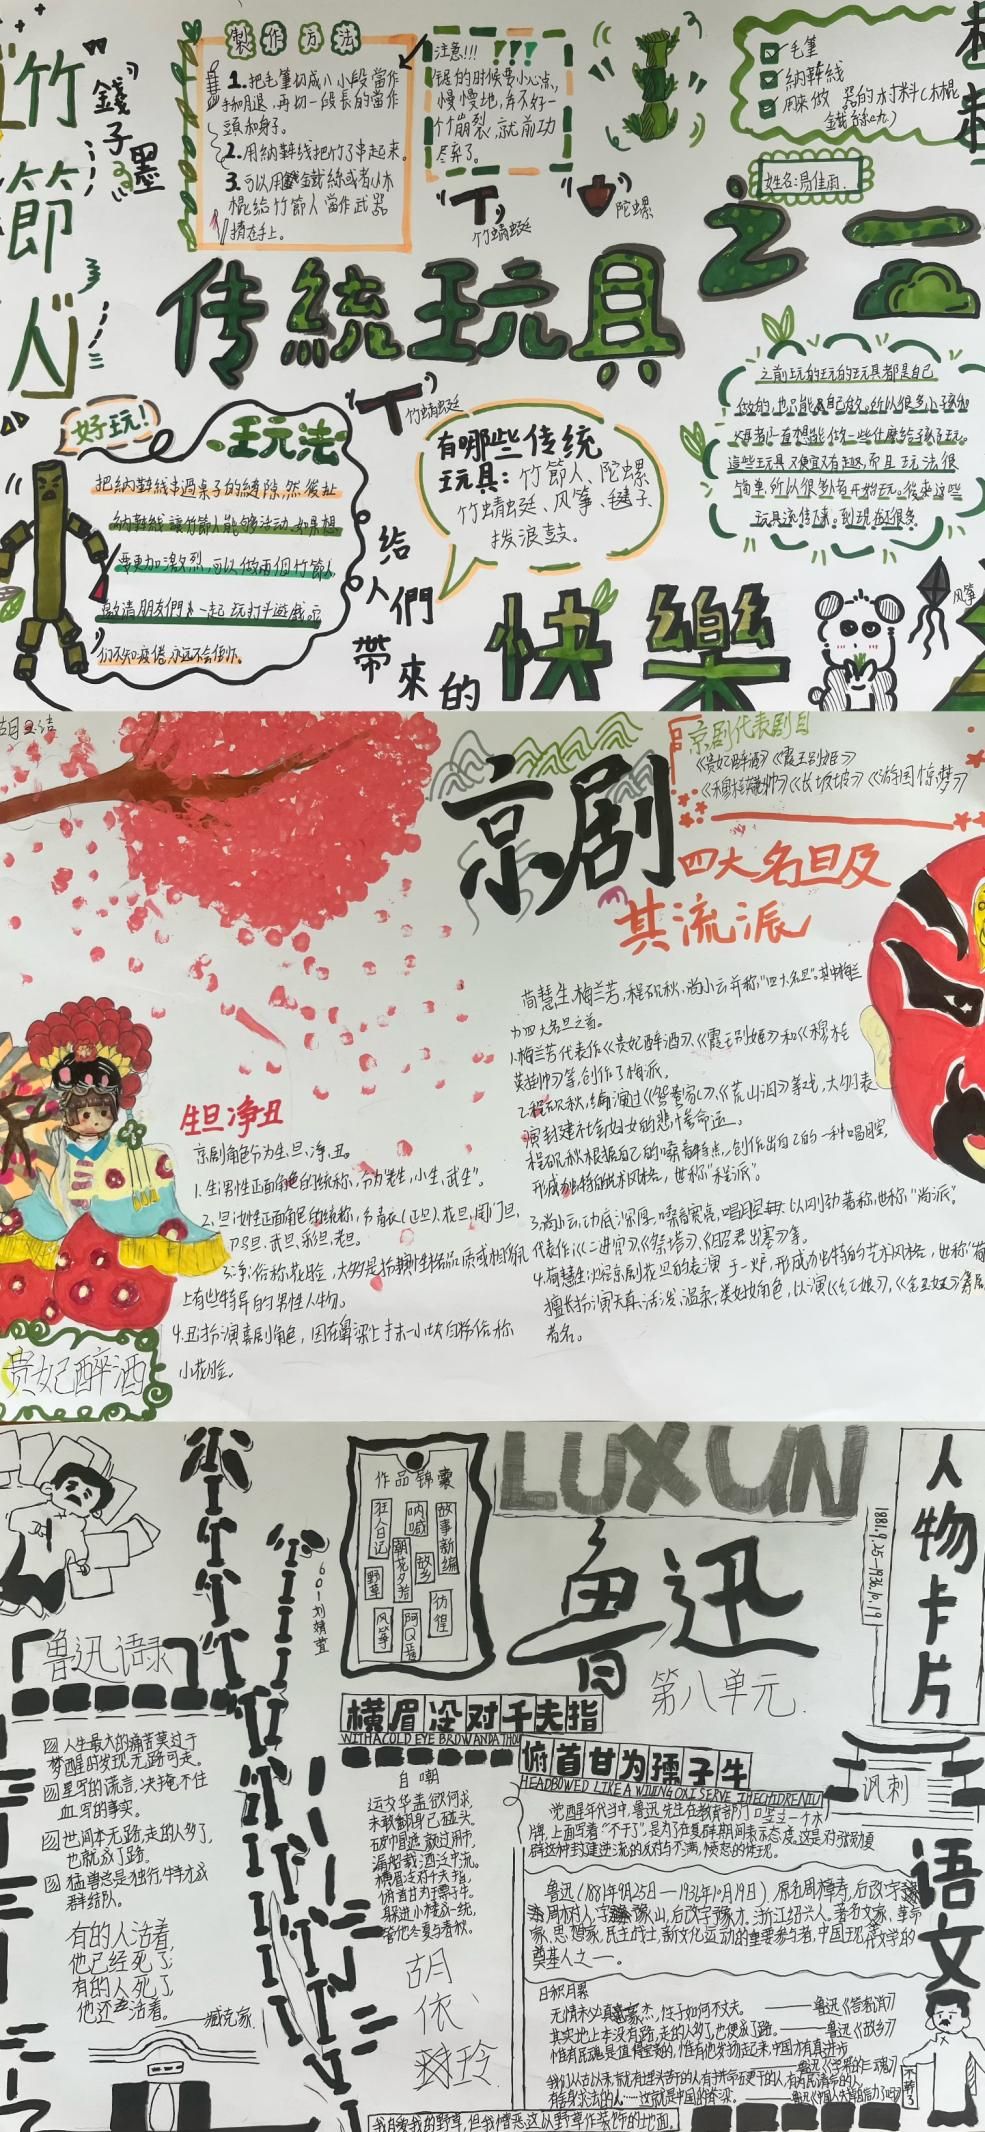 竹節人
錢子墨
製作方法
1.把毛筆切成八小段當作
手和腿，再切一段長的當作
頭和身子。
2.用納鞋线把竹子串起來。
3.可以用鐵絲或者小木
棍給竹節人當作武器
注意!!!
锯的时候要小心点,
慢慢地,弄不好一
个崩裂,就前功
尽弃了。
竹蜻蜓
陀螺
毛筆
納鞋线
用來做 器的材料(木棍
鐵絲
姓名:易佳雨.
传統玩具之一
好玩!
玩法
把納鞋线串過桌子的縫隙,然後扯
納鞋线讓竹節人能够活动.如果想
要更加激烈,可以做兩個竹節人
邀請朋友們來一起玩打斗遊戲。
们不知疲倦.永远不会倒下。
竹蜻蜓
有哪些传统
玩具:竹節人、陀螺
竹蜻蜓、风筝、毽子、
拨浪鼓。
之前玩的玩具都是自己
做的,也只能自己做。所以很多小孩和
這些玩具不便宜又有趣,而且玩法很
简单.所以很多人都开始玩。後來这些
玩具流传下來。到现在很多
給人們帶來的快樂
风筝
京剧
京剧代表剧目
《贵妃醉酒》《霸王别姬》
《穆桂英挂帅》《长坂坡》《游园惊梦》
四大名旦及
其流派
荀慧生,梅兰芳,程砚秋,尚小云并称"四大名旦"。其中梅兰
为四大名旦之首。
1.梅兰芳代表作《贵妃醉酒》、《霸王别姬》和《穆桂
英挂帅》等,创作了梅派。
2.程砚秋,编演过《鸳鸯冢》、《荒山泪》等戏,大多表
演封建社会妇女的悲惨命运。
程砚秋根据自己的嗓音特点,创作出自己的一种唱腔,
形成独特的艺术风格,世称"程派"。
3.尚小云,功底深厚,嗓音宽亮,唱腔 以刚劲著称,世称"尚派"。
代表作:《二进宫》、《祭塔》、《昭君出塞》等
4.荀慧生 京剧花旦的表演 于一炉,形成独特的艺术风格,世称"荀
擅长扮演天真、活泼、温柔一类妇女角色,以演《红娘》、《金玉奴》等剧
著名。
生旦净丑
京剧角色分为生、旦、净、丑。
1.生:男性正面角色的统称,分为老生,小生,武生。
2.旦:女性正面角色的统称,分青衣(正旦)、花旦、闺门旦、
刀马旦、武旦、彩旦、老旦.
3.净:俗称花脸,大多是扮演性格品质或相貌
上有些特异的男性人物。
4.丑:扮演喜剧角色,因在鼻梁上抹一小块白粉,俗称
小花脸。
贵妃醉酒
LUXUN
鲁迅
第八单元
601刘婧萱
作品锦囊
狂人日记
呐喊
故事新编
朝花夕拾
故乡
野草
彷徨
风筝
人物卡片
1881.9.25-1936.10.19
讽刺
语文
鲁迅语录
人生最大的痛苦莫过于
梦醒的发现无路可走。
墨写的谎言,决掩不住
血写的事实。
世间本无路,走的人多了,
也就成了路。
猛兽总是独行,牛羊才成
群结队。
有的人活着
他已经死了;
有的人死了,
他还活着。
——臧克家
横眉冷对千夫指
俯首甘为孺子牛
自嘲
运交华盖欲何求,
未敢翻身已碰头。
破帽遮颜过闹市,
漏船载酒泛中流。
横眉冷对千夫指,
俯首甘为孺子牛。
躲进小楼成一统,
管他冬夏与春秋。
觉醒年代当中,鲁迅先生在教育部门口竖立一个木
牌,上面写着"不干了",是为了在复辟期间表示态度,这是对张勋复
辟这种封建逆流的反对与不满,愤怒的体现。
鲁迅(1881年9月25日—1936年10月19日),原名周樟寿,后改字
周树人,字豫山,后改字豫才,浙江绍兴人。著名文家、革命
家、思想家,民主战士,新文化运动的重要参与者,中国现代文学的
奠基人之一。
日积月累
无情未必真豪杰,怜子如何不丈夫。——鲁迅《答客诮》
其实地上本没有路,走的人多了,也便成了路。——鲁迅《故乡》
惟有民魂是值得宝贵的,惟有他发扬起来,中国才有真进步
——鲁迅《学界的三魂》
我自爱我的野草,但我憎恶这以野草作装饰的地面。